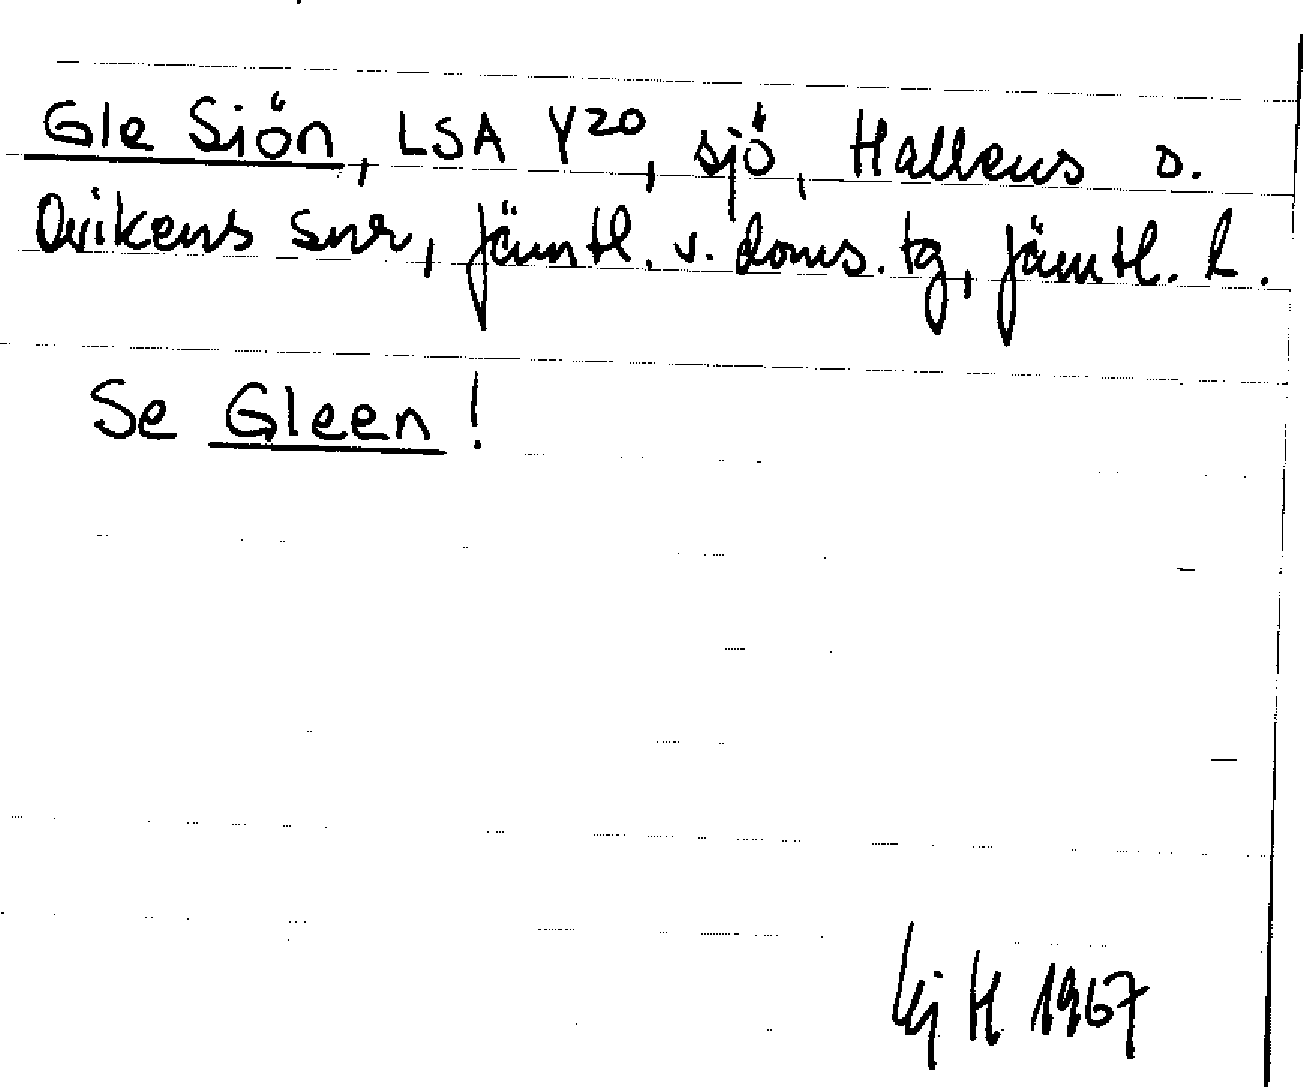 Gle Sjön, LSA Y20, sjö, Hallens o.
Ovikens snr, Jämtl. v. doms. tg, Jämtl. l.
Se Gleen!
H 1967